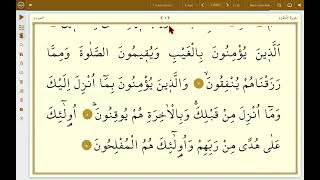 اَلَّذِينَ يُؤْمِنُونَ بِالْغَيْبِ وَيُقِيمُونَ الصَّلٰوةَ وَمِمَّا
رَزَقْنَاهُمْ يُنْفِقُونَۙ وَالَّذِينَ يُؤْمِنُونَ بِمَٓا اُنْزِلَ اِلَيْكَ
وَمَٓا اُنْزِلَ مِنْ قَبْلِكَۚ وَبِالْاٰخِرَةِ هُمْ يُوقِنُونَۜ اُو۬لٰٓئِكَ
عَلٰى هُدًى مِنْ رَبِّهِمْ وَاُو۬لٰٓئِكَ هُمُ الْمُفْلِحُونَ